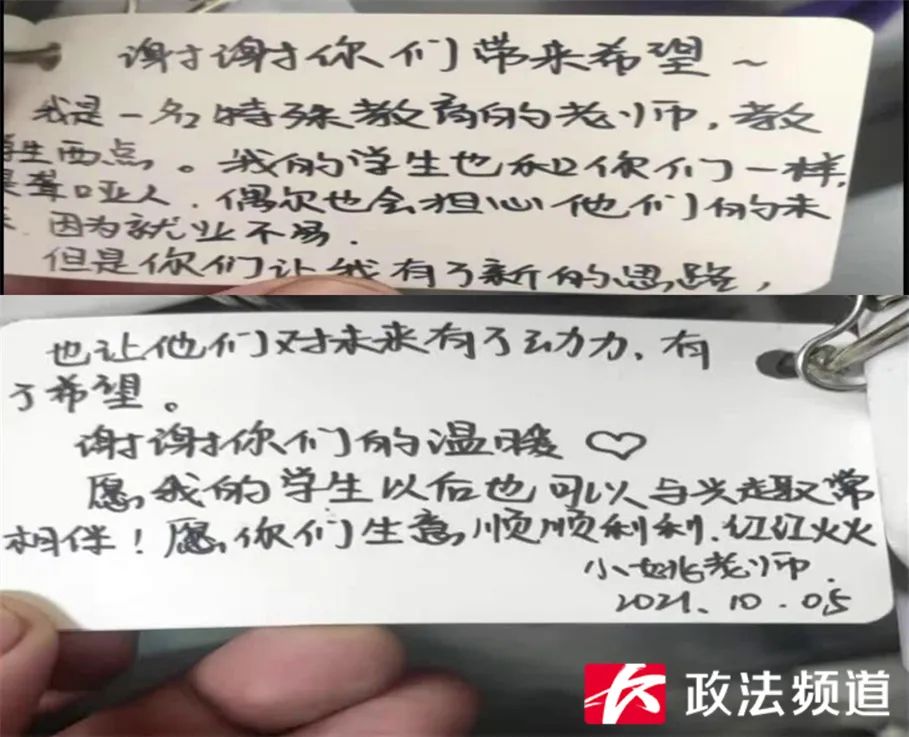 谢谢你们带来希望~
我是一名特殊教育的老师,教
学生西点。我的学生也和你们一样,
是聋哑人,偶尔也会担心他们的未
来,因为就业不易.
但是你们让我有了新的思路,
也让他们对未来有了动力、有
了希望。
谢谢你们的温暖♡
愿我的学生以后也可以与兴趣常
相伴!愿你们生意顺顺利利.红红火火
小姚老师.
2021.10.05
政法频道